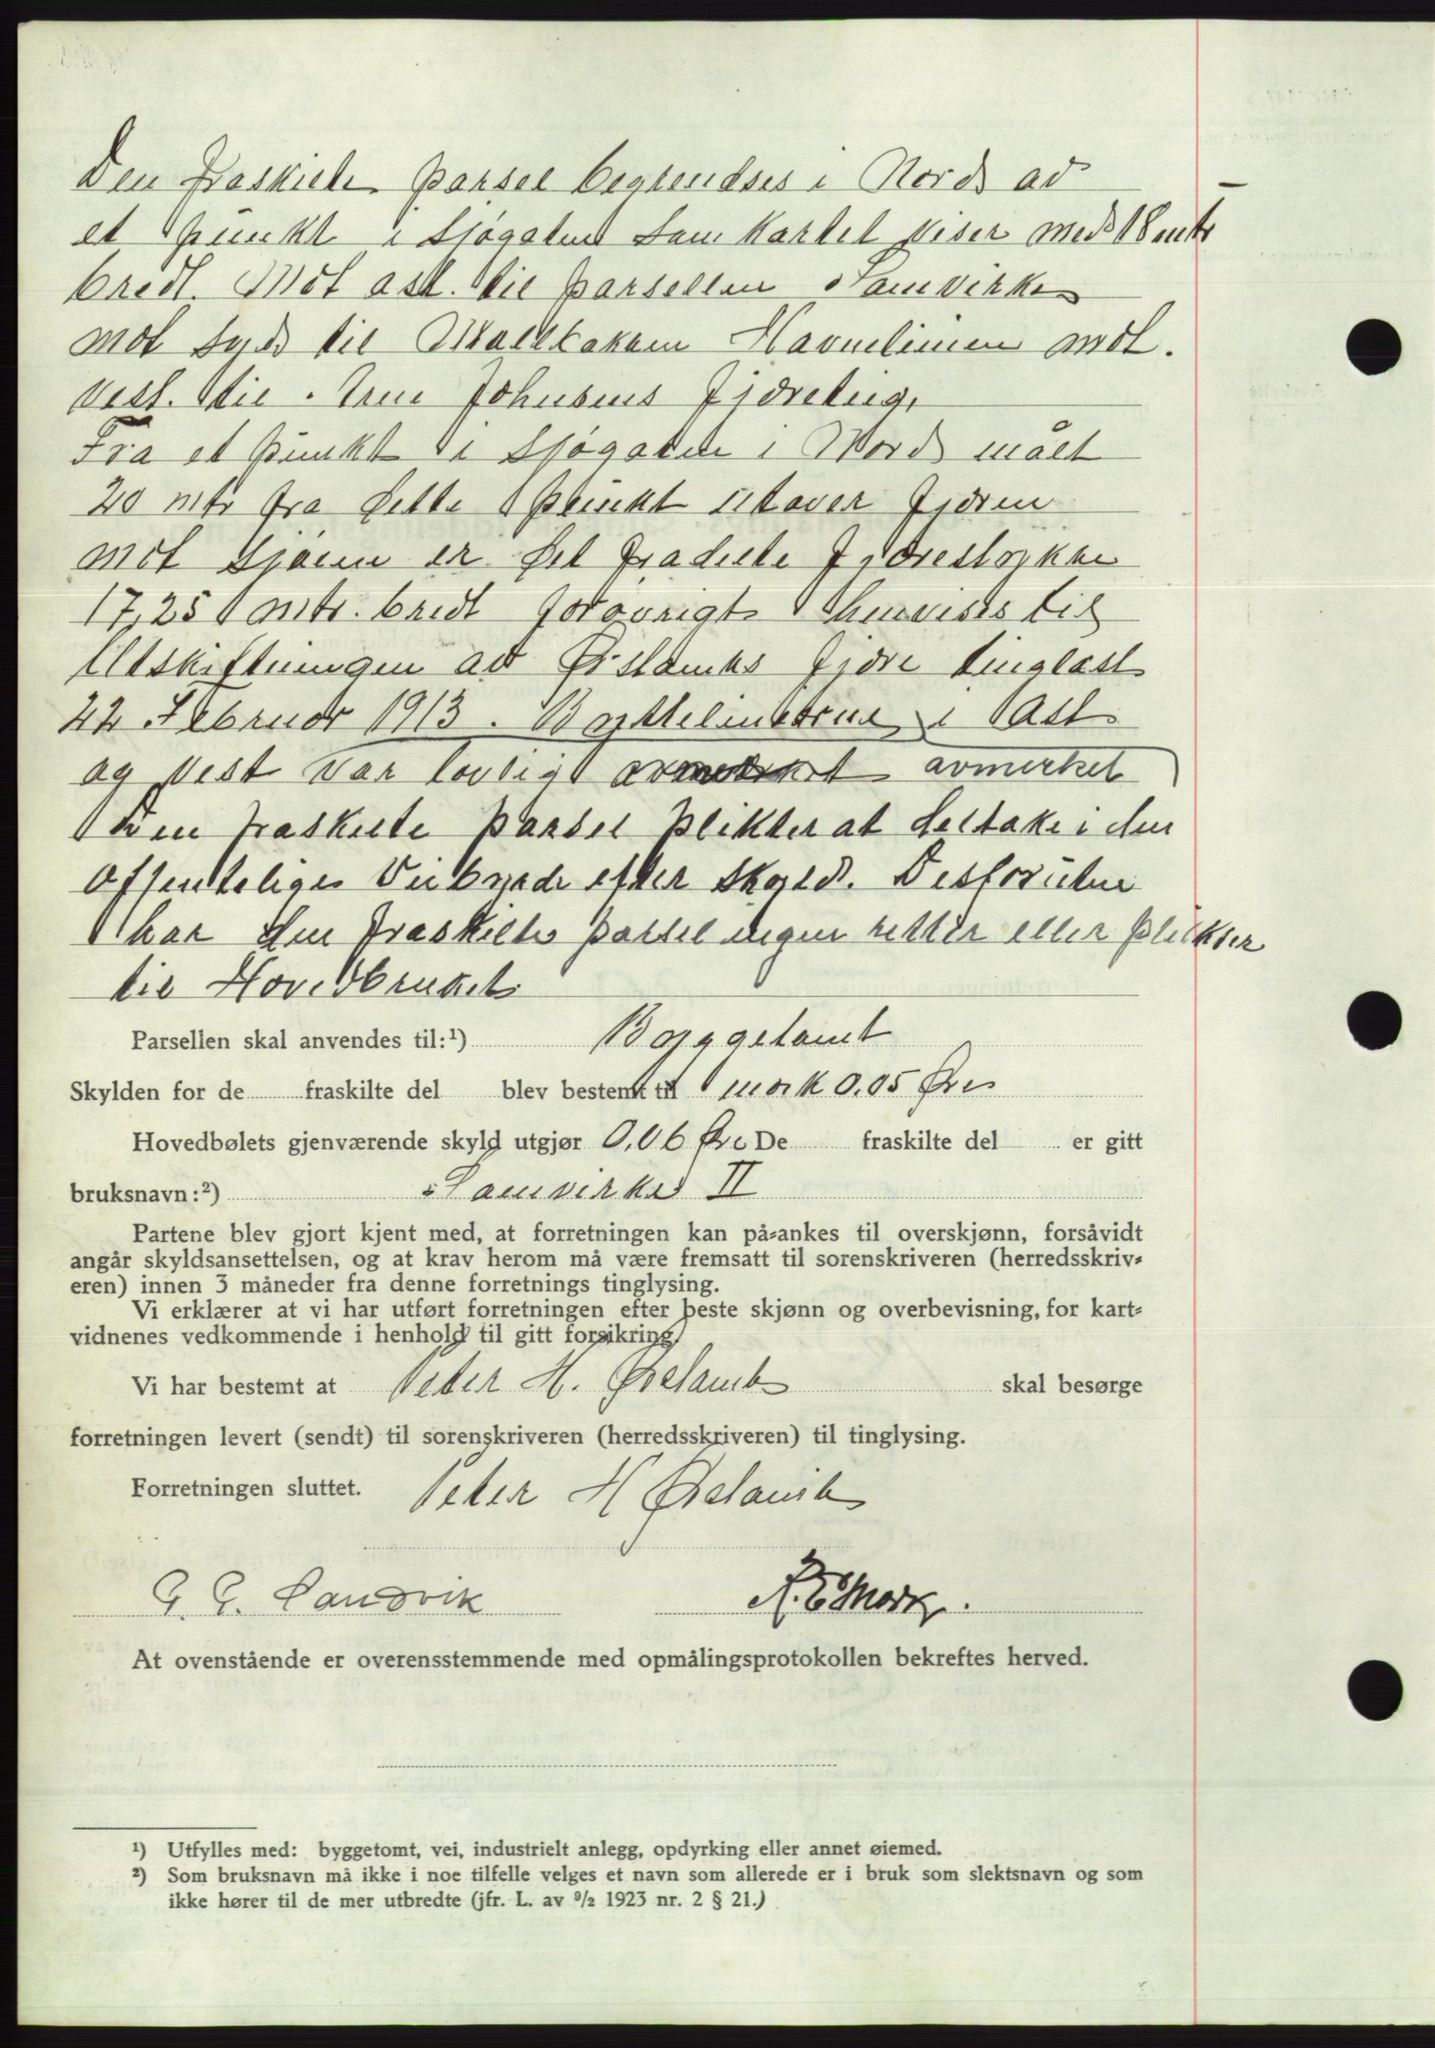 Den fraskilte parsel begrendses i Nord av
et punkt i Sjøgaten som kartet viser med 18 mtr
bredt. Mot ast. til parsellen Samvirke
mot syd til Havnelinien mot.
vest. til Johnsens fjæreteig,
Fra et punkt i Sjøgaten i Nord målt
20 mtr fra dette punkt utover fjæren
mot sjøen er det fradelte fjærestøkke
17,25 mtr. bredt forøvrigt henvises til
Utskiftningen av Ørstaviks fjære tinglæst
22 Februar 1913. Byttelinierne i Ast
og Vest var lovligt avmerket
Den fraskilte parsel plikter at deltake i den
offentelige Veibyrde efter skyld. Desforuten
har den fraskilte parsel ingen retter eller plikter
til Hovedbruket
Parsellen skal anvendes til:¹) Byggetomt
Skylden for de fraskilte del blev bestemt til mark 0.05 Øre
Hovedbølets gjenværende skyld utgjør 0,06 Øre De fraskilte del er gitt
bruksnavn:²) Samvirke II
Partene blev gjort kjent med, at forretningen kan på-ankes til overskjønn, forsåvidt
angår skyldsansettelsen, og at krav herom må være fremsatt til sorenskriveren (herredsskriv-
eren) innen 3 måneder fra denne forretnings tinglysing.
Vi erklærer at vi har utført forretningen efter beste skjønn og overbevisning, for kart-
vidnenes vedkommende i henhold til gitt forsikring.
Vi har bestemt at Peter H. Ørstavik skal besørge
forretningen levert (sendt) til sorenskriveren (herredsskriveren) til tinglysing.
Forretningen sluttet. Peter H Ørstavik
G. G. Sandvik A. E Mork.
At ovenstående er overensstemmende med opmålingsprotokollen bekreftes herved.
¹) Utfylles med: byggetomt, vei, industrielt anlegg, opdyrking eller annet øiemed.
²) Som bruksnavn må ikke i noe tilfelle velges et navn som allerede er i bruk som slektsnavn og som
ikke hører til de mer utbredte (jfr. L. av 9/2 1923 nr. 2 § 21.)